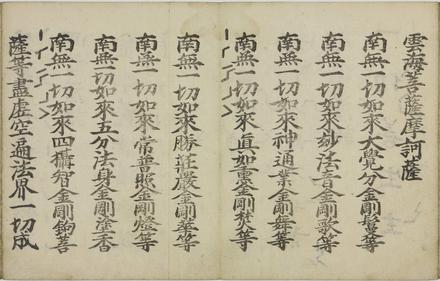 雲海菩薩摩訶薩
南無一切如來大覺分金剛鬘等
南無一切如來妙法音金剛歌等
南無一切如來神通業金剛舞等
南無一切如來真如薰金剛焚等
南無一切如來勝莊嚴金剛華等
南無一切如來常普照金剛燈等
南無一切如來五分法身金剛塗香
南無一切如來四攝智金剛鉤菩
薩等盡虛空遍法界一切成